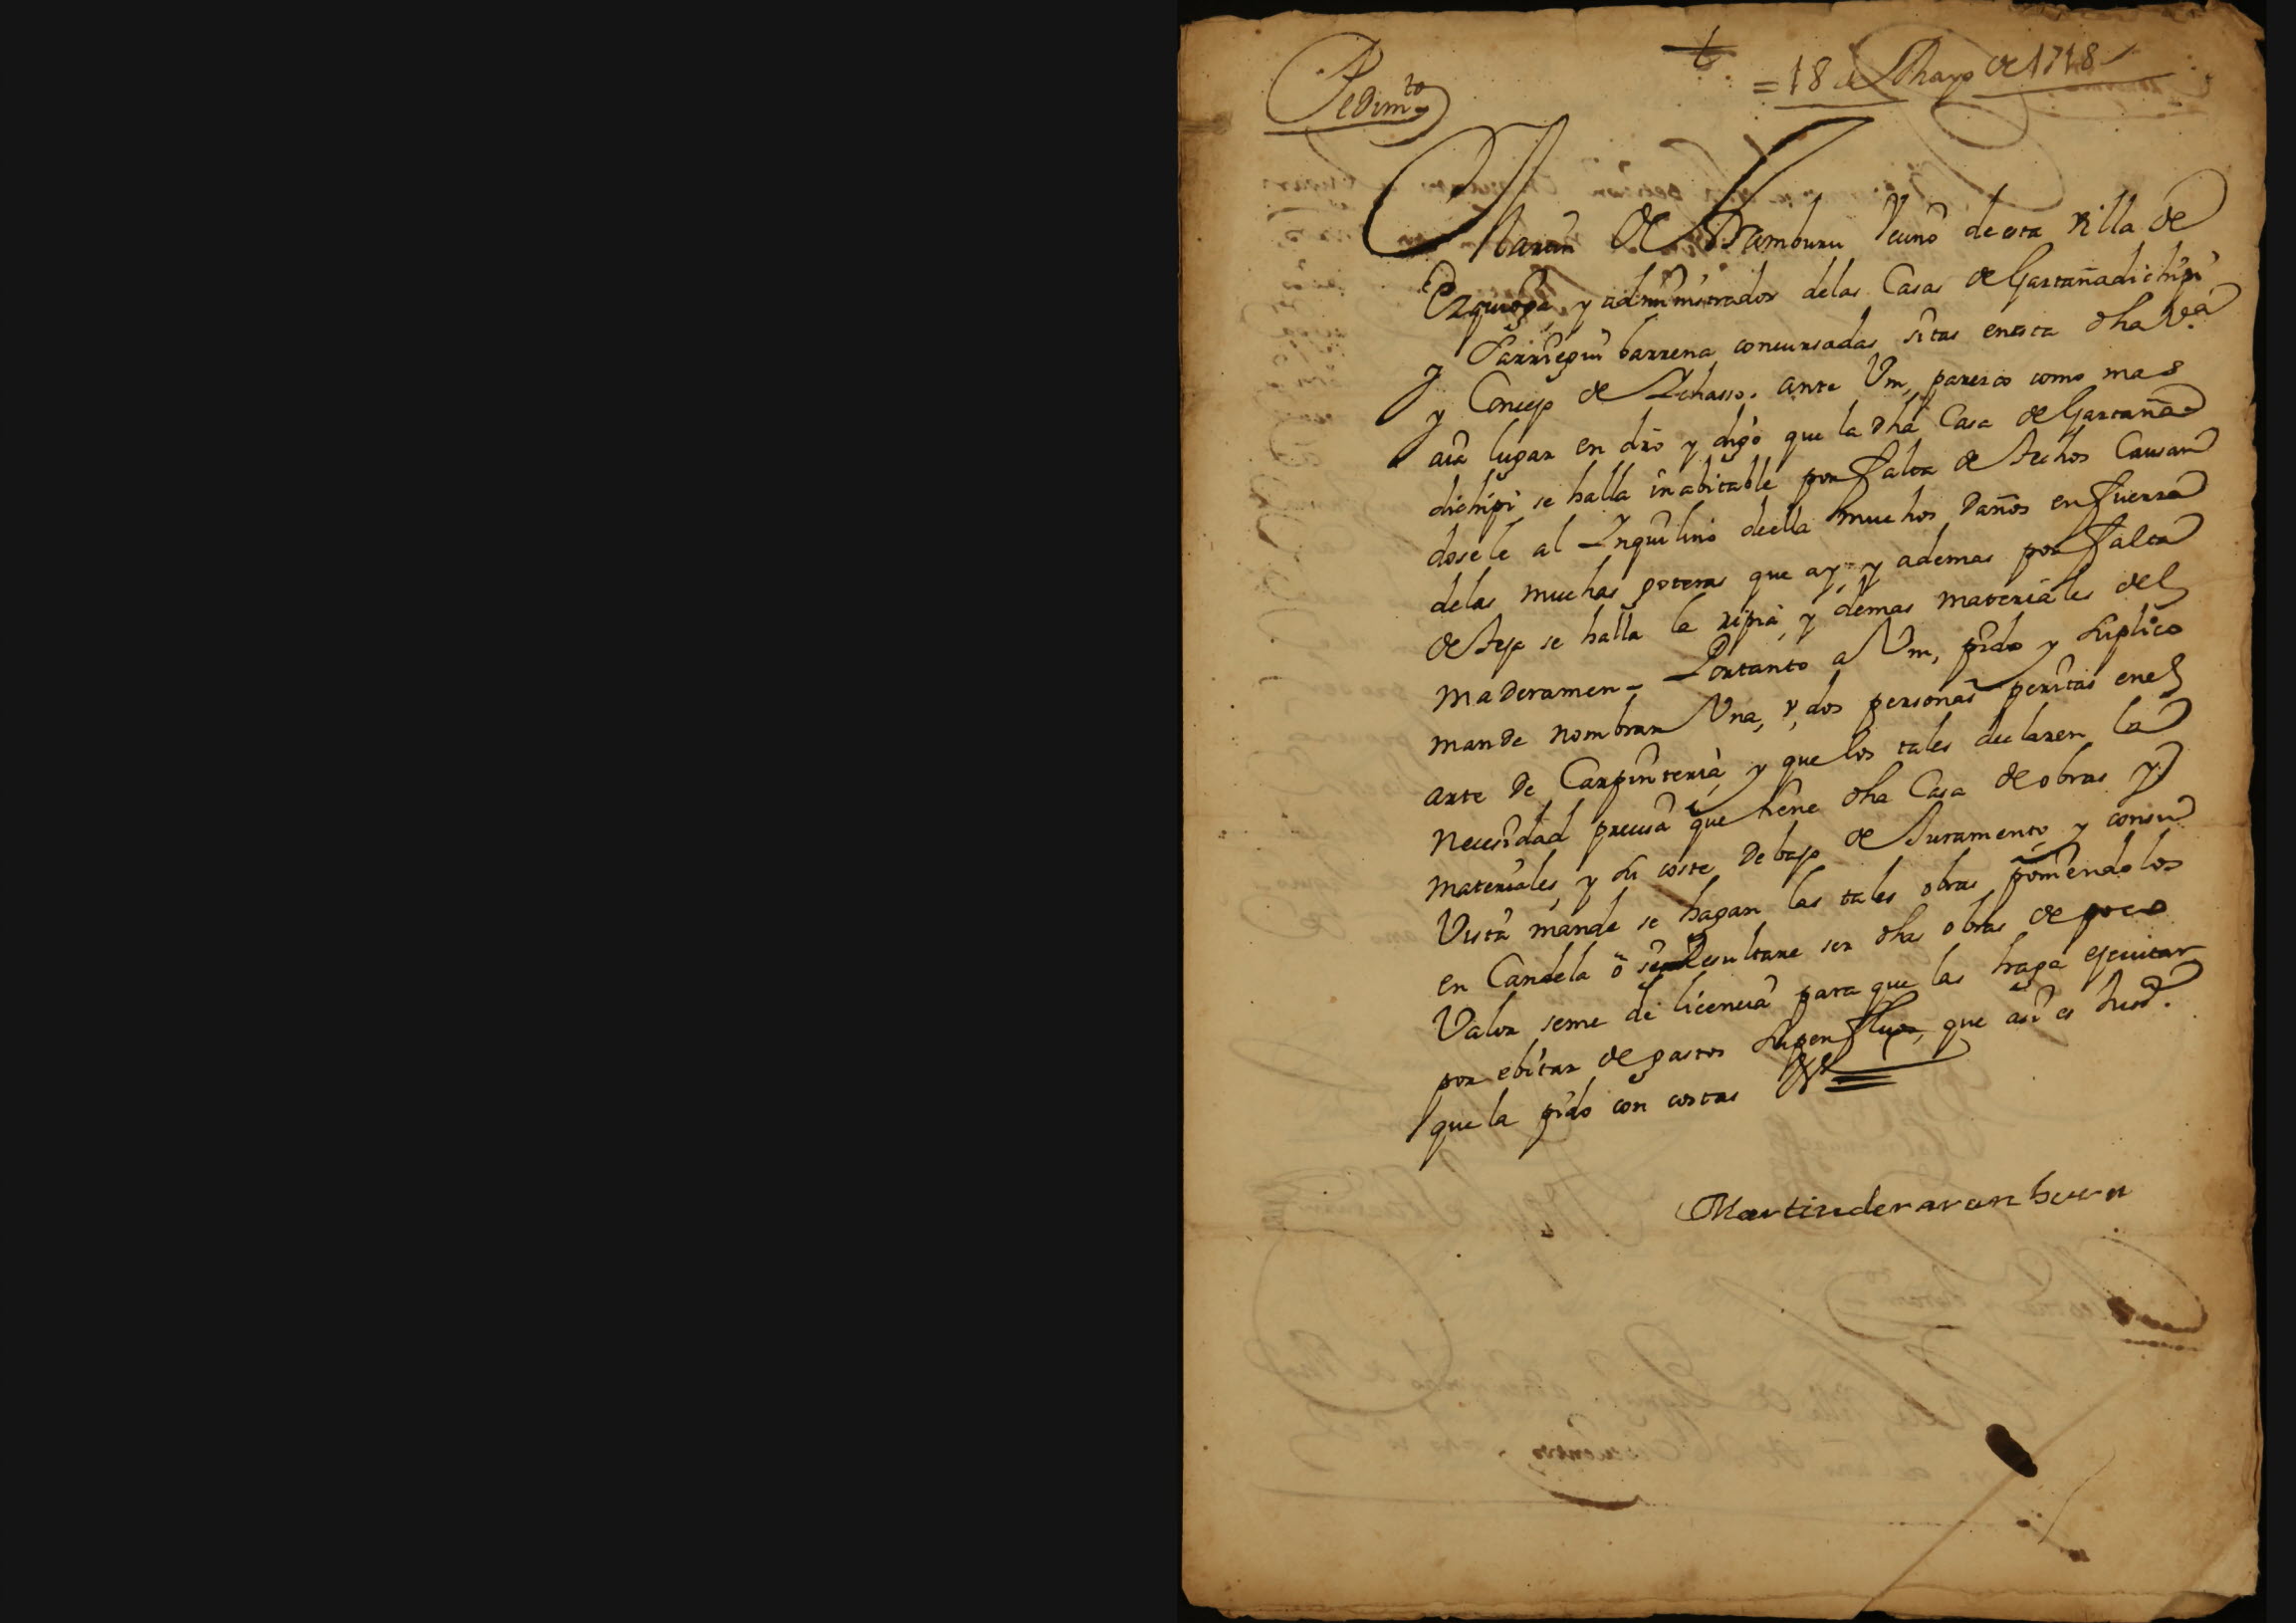 Pedimto
= 18 de Mayo de 1718
Martin de Aramburu Vecino de esta Villa de
Ezquioga, y administrador delas Casas de Gartañadichipi
y Parriegui barrena concursadas sitas enesta dha Va
y Concejo de Ichasso. ante Vm, paresco como mas
aia lugar en dro y digo que la dha Casa de Gartaña
dichipi se halla inabitable por falta de techos Causan
dosele al Inquilino deella muchos daños enfuerza
delas muchas goteras que ay, y ademas por falta
de teja se halla la ripia, y demas materiales del
maderamen - Portanto a Vm, pido y suplico
mande nombrar Una, y, dos personas peritas enel
arte de Carpinteria, y que los tales declaren la
necesidad precisa que tiene dha Casa de obras y
materiales, y su coste debajo de Juramento, y consu
Vista mande se hagan las tales obras poniendolos
en Candela ô si Resultare ser dhas obras de poco
Valor seme dê licencia para que las haga ejecutar
por ebitar de gastos superfluos, que asi es Justa.
que la pido con costas &a
Martinderaranburu